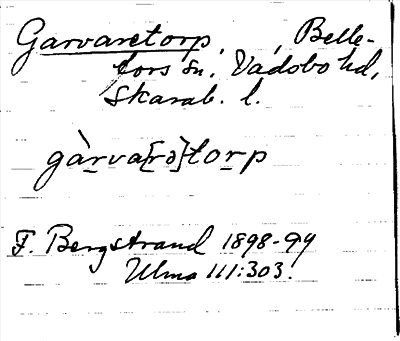 Garvaretorp, Belle-
fors sn, Vadsbo hd,
Skarab. l.
gàrva[rə]torp
F. Bergstrand 1898-99
Ulma 111:303.